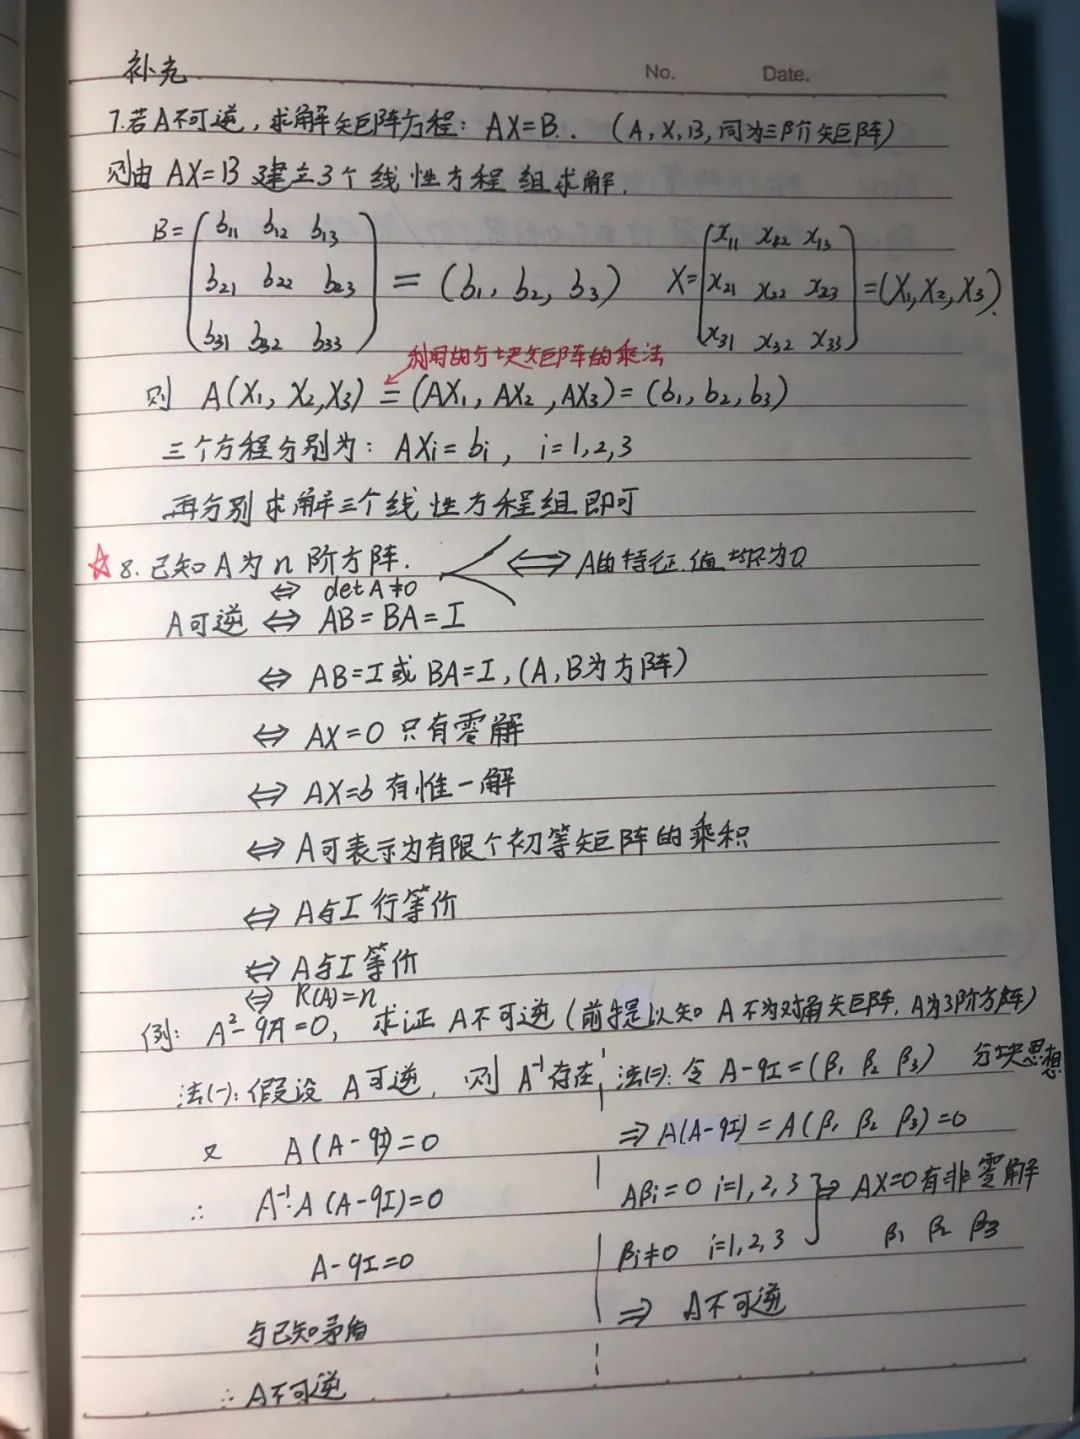 补充
No. Date.
7.若A不可逆,求解矩阵方程: AX=B. (A,X,B,同为三阶矩阵)
则由 AX=B 建立3个线性方程组求解.
B= ( b11 b12 b13 b21 b22 b23 b31 b32 b33 ) = (b1, b2, b3) X= ( x11 x12 x13 x21 x22 x23 x31 x32 x33 ) =(X1,X2,X3).
利用的分块矩阵的乘法
则 A(X1, X2,X3) = (AX1, AX2, AX3) = (b1, b2, b3)
三个方程分别为: AXi=bi, i=1,2,3
再分别求解三个线性方程组即可
☆8.已知A为n阶方阵. ⇔ A的特征值均不为0
⇔ detA≠0
A可逆 ⇔ AB=BA=I
⇔ AB=I或BA=I,(A,B为方阵)
⇔ AX=0只有零解
⇔ AX=b有惟一解
⇔ A可表示为有限个初等矩阵的乘积
⇔ A与I行等价
⇔ A与I等价
⇔ R(A)=n
例: A²-9A=0, 求证A不可逆(前提以知A不为对角矩阵,A为3阶方阵)
法(一):假设A可逆,则A⁻¹存在,
又 A(A-9I)=0
∴ A⁻¹·A(A-9I)=0
A-9I=0
与已知矛盾
∴A不可逆
法(二):令A-9I=(β1 β2 β3) 分块思想
⇒ A(A-9I)=A(β1 β2 β3)=0
Aβi=0 i=1,2,3 ⇒ AX=0有非零解
βi≠0 i=1,2,3 β1 β2 β3
⇒ A不可逆